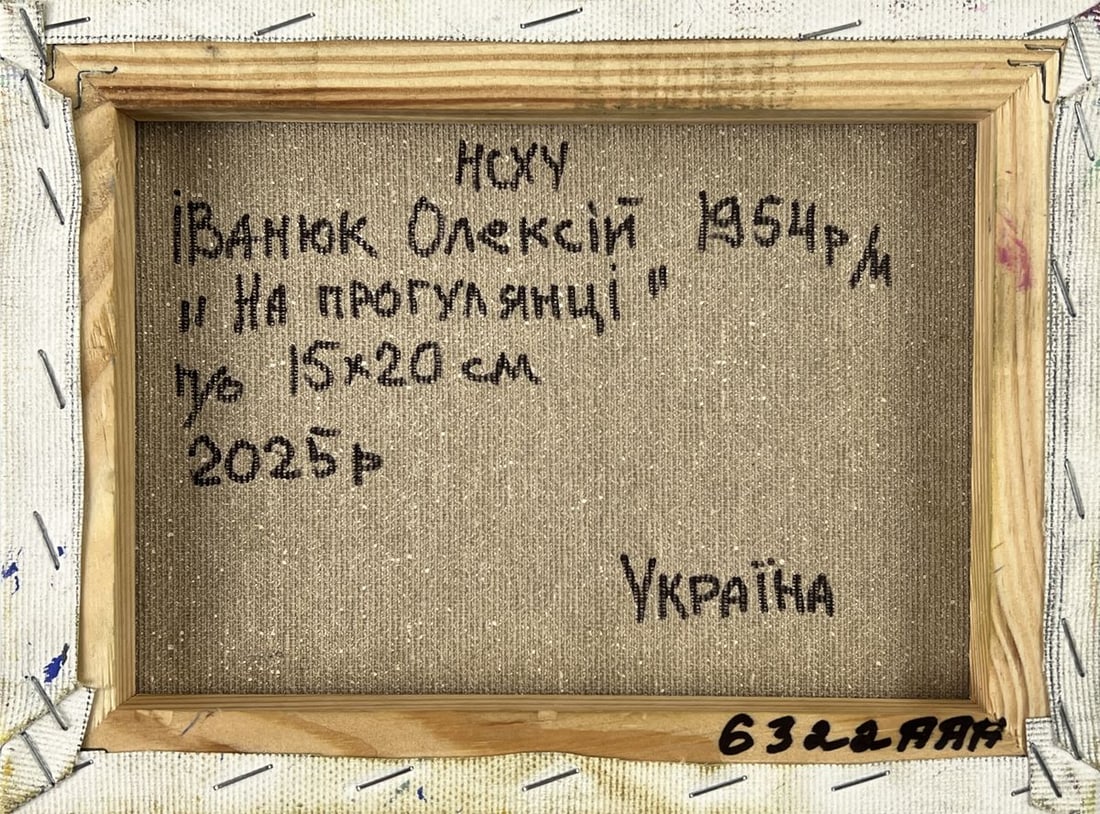 НСХУ
Іванюк Олексій 1954р/м
„На прогулянці"
п/о 15х20 см
2025р
Україна
6322ААН